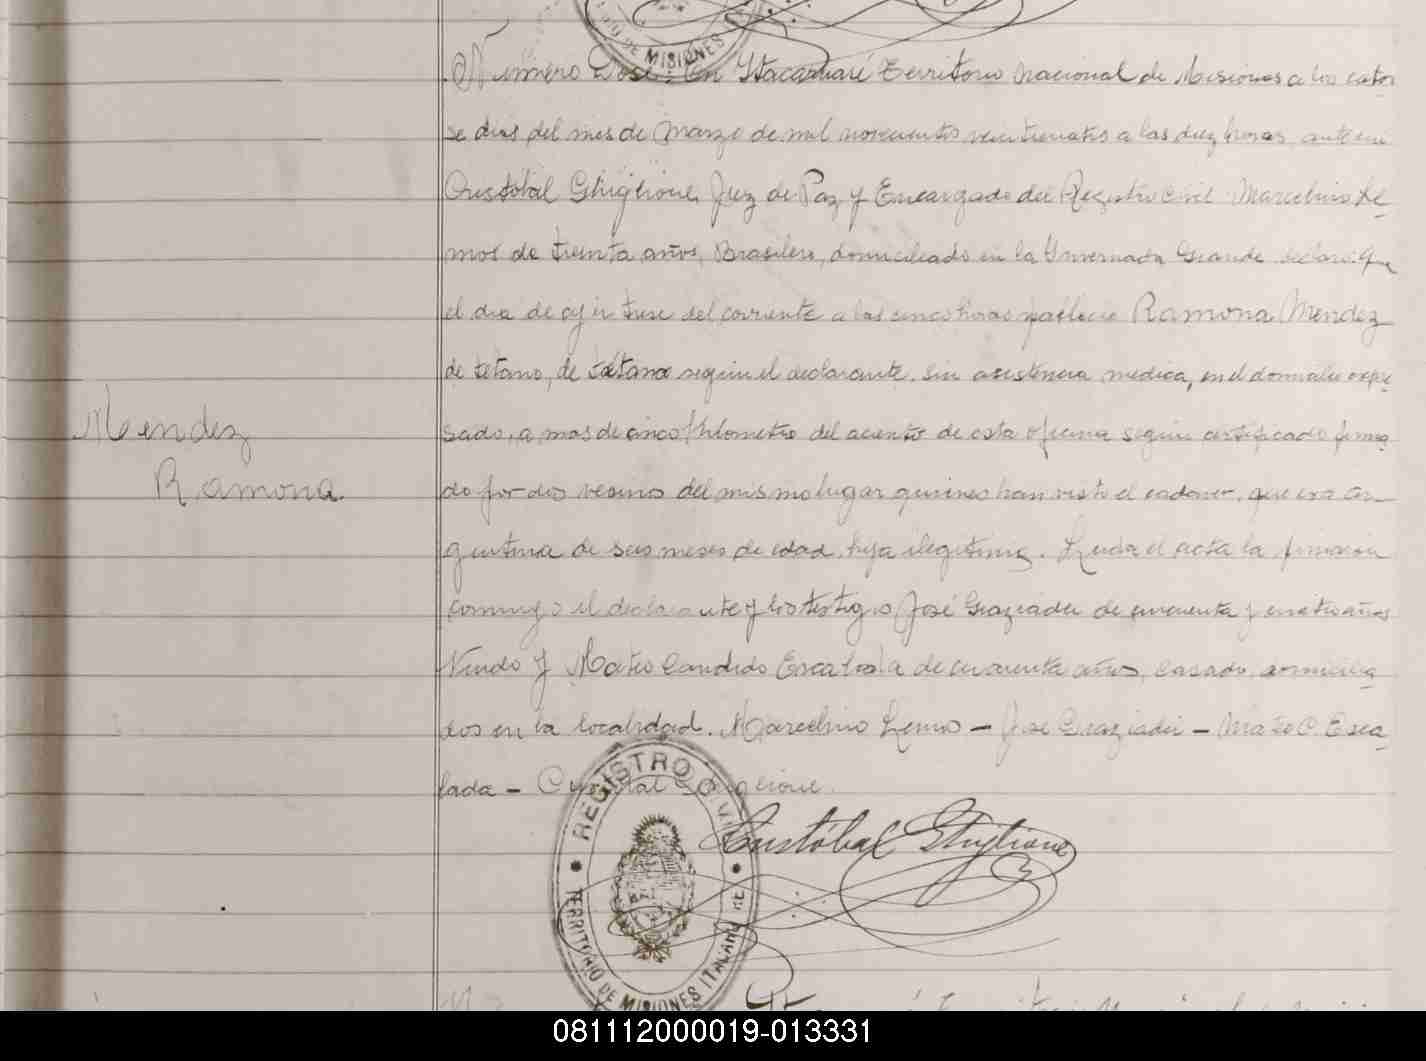 DE MISIONES
Número Dose: En Itacaruaré Territorio Nacional de Misiones a los cator
se dias del mes de Marzo de mil novecientos a las diez horas, ante mi
Cristóbal Ghiglione, Juez de Paz y Encargado del Registro Civil Marcelino Le-
mos de treinta años, Brasilero, domiciliado en la Invernada Grande declaro: que
el dia de ayer trese del corriente a las cinco horas fallecio Ramona Mendez
de tetano, de tétano según el declarante, sin asistencia medica, en el domicilio expre-
sado, a mas de cinco kilometros del aciento de esta oficina según certificado firma-
do por dos vesinos del mismo lugar quienes han visto el cadaver, que era ar-
gentina de seis meses de edad, hija ilegitima. Leida el acta la firmaron
conmigo el declarante y los testigos José Graziadei de cincuenta y cuatro años
Viudo y Mateo Candido Escalada de cuarenta años, casado, domicilia-
dos en la localidad. Marcelino Lemos - José Graziadei - Mateo C. Esca-
lada - Cristobal Ghiglione.
Mendez
Ramona.
Cristóbal Ghiglione
REGISTRO CIVIL
TERRITORIO DE MISIONES ITACARUARE
081112000019-013331